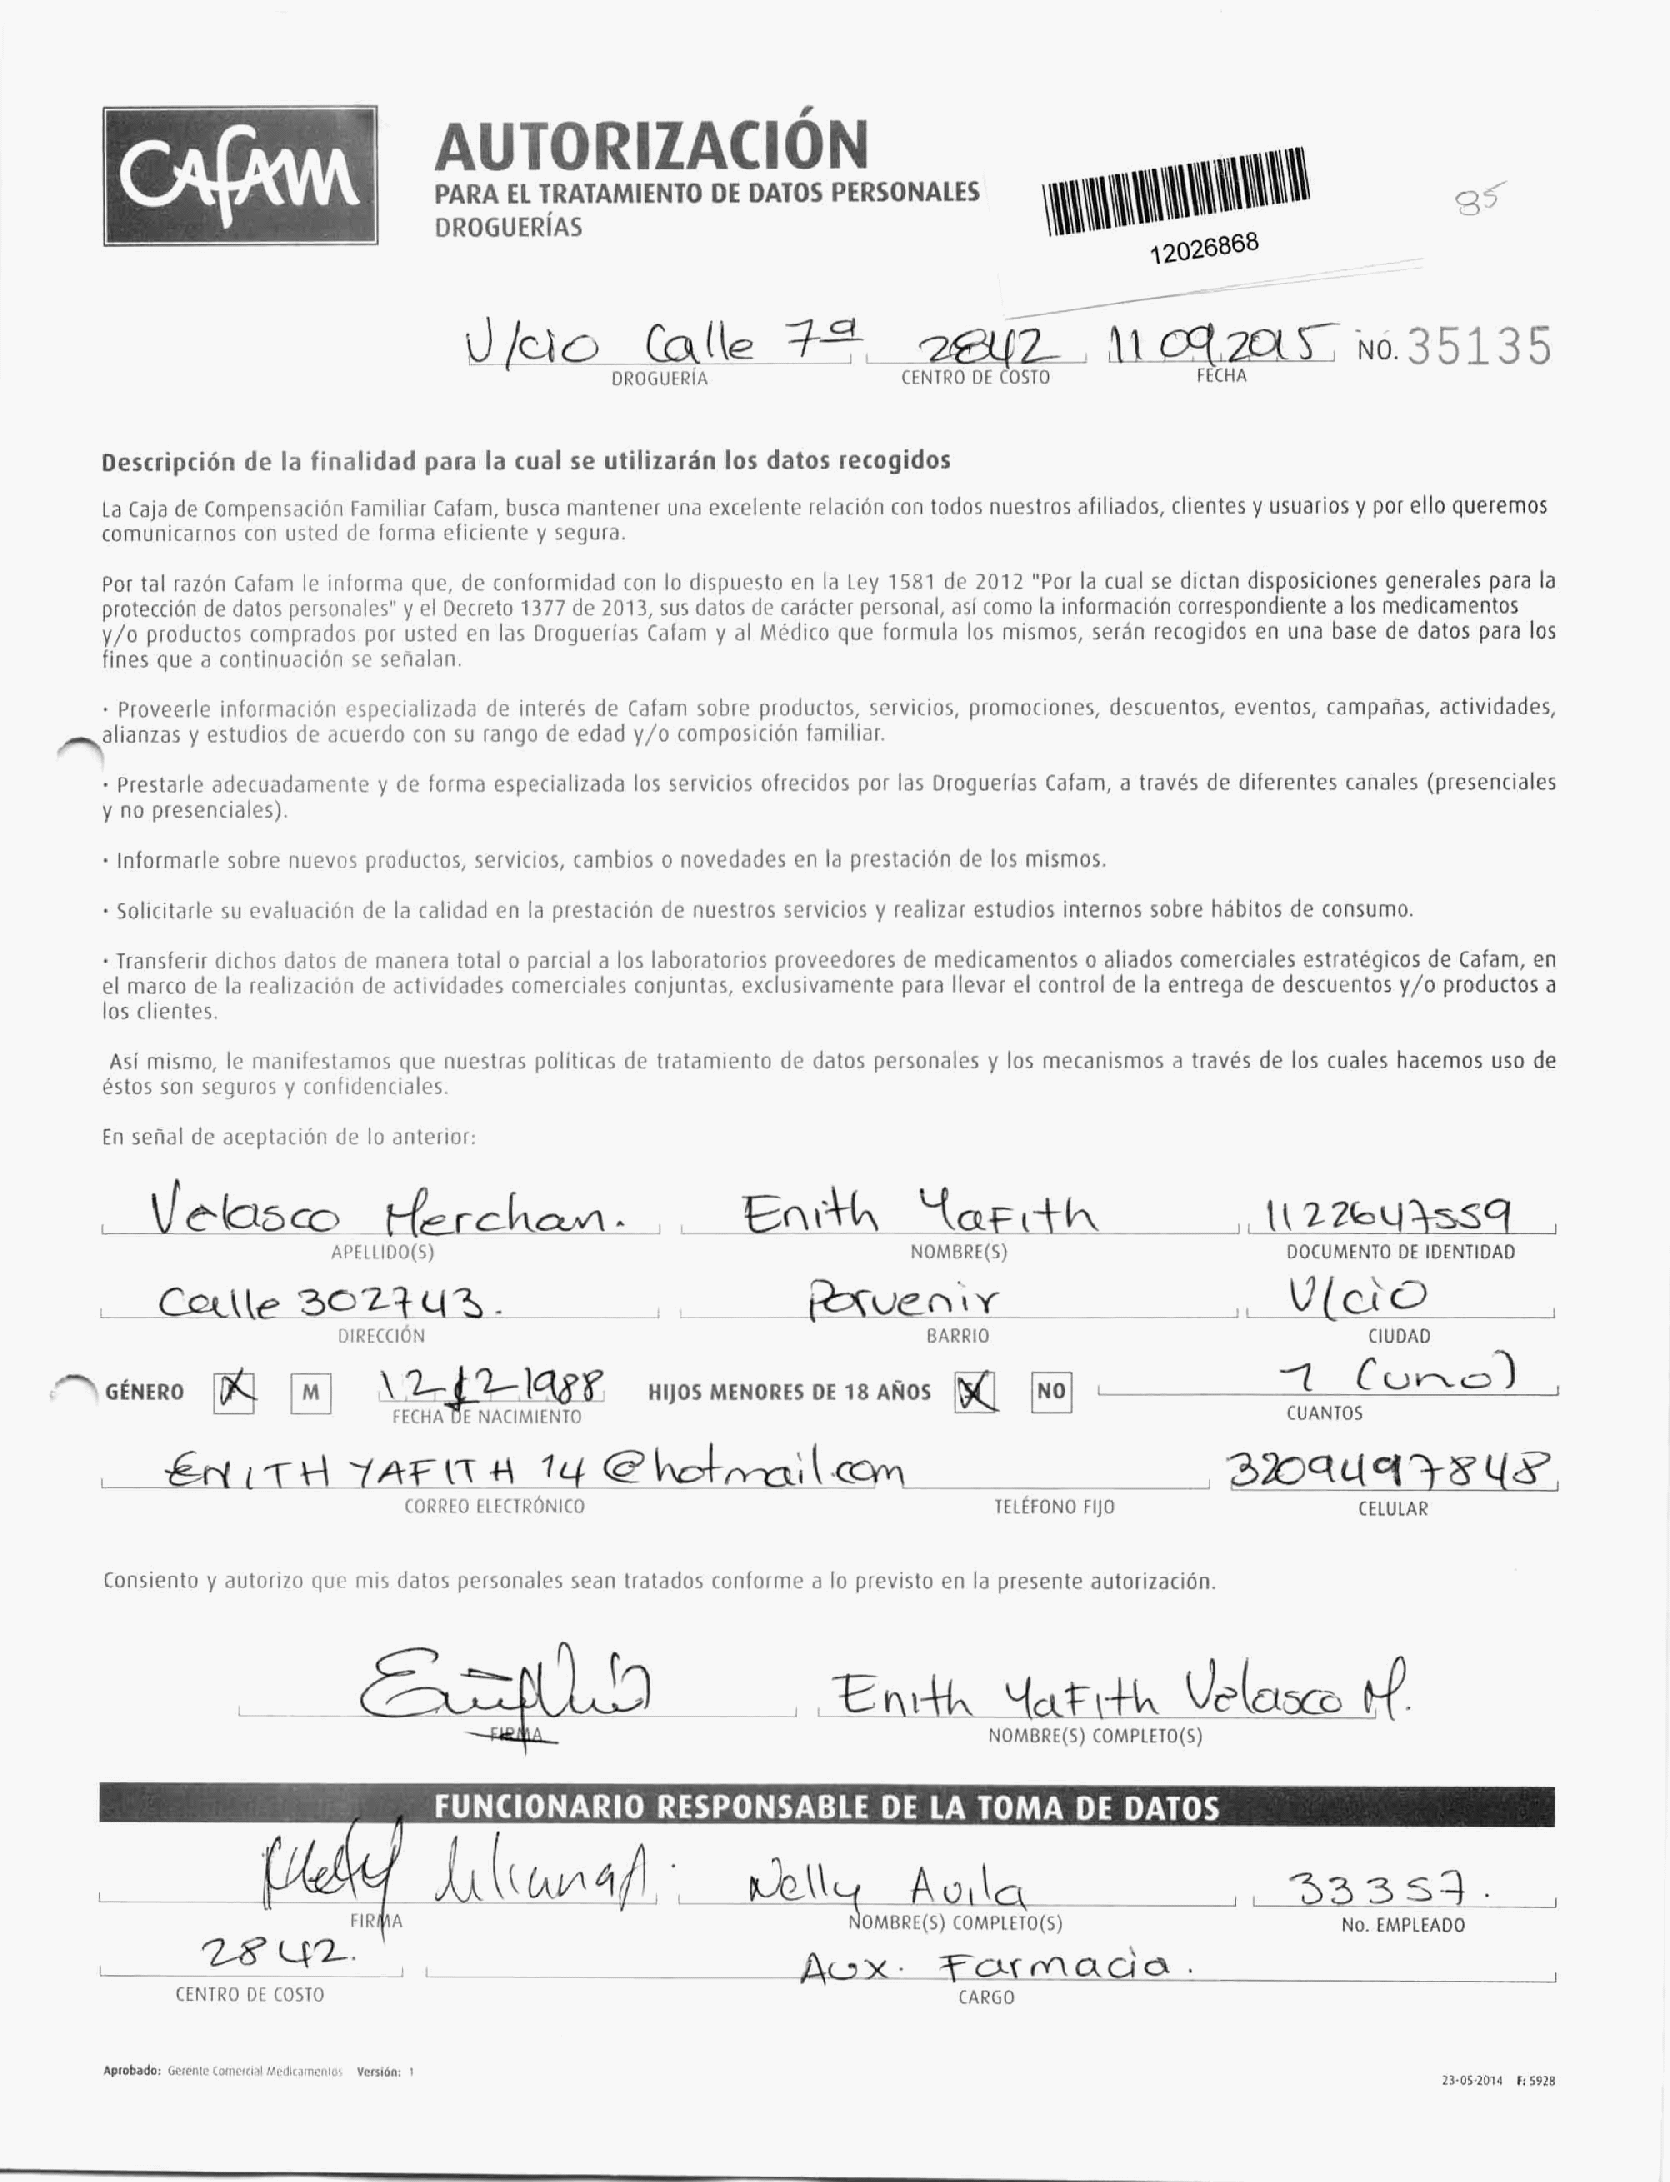 CAFAM
AUTORIZACIÓN
PARA EL TRATAMIENTO DE DATOS PERSONALES
DROGUERÍAS
12026868
85
V/cio Calle 7ª 2842 11 09 2015 NO. 35135
DROGUERÍA CENTRO DE COSTO FECHA
Descripción de la finalidad para la cual se utilizarán los datos recogidos
La Caja de Compensación Familiar Cafam, busca mantener una excelente relación con todos nuestros afiliados, clientes y usuarios y por ello queremos
comunicarnos con usted de forma eficiente y segura.
Por tal razón Cafam le informa que, de conformidad con lo dispuesto en la Ley 1581 de 2012 "Por la cual se dictan disposiciones generales para la
protección de datos personales" y el Decreto 1377 de 2013, sus datos de carácter personal, así como la información correspondiente a los medicamentos
y/o productos comprados por usted en las Droguerías Cafam y al Médico que formula los mismos, serán recogidos en una base de datos para los
fines que a continuación se señalan.
· Proveerle información especializada de interés de Cafam sobre productos, servicios, promociones, descuentos, eventos, campañas, actividades,
alianzas y estudios de acuerdo con su rango de edad y/o composición familiar.
· Prestarle adecuadamente y de forma especializada los servicios ofrecidos por las Droguerías Cafam, a través de diferentes canales (presenciales
y no presenciales).
· Informarle sobre nuevos productos, servicios, cambios o novedades en la prestación de los mismos.
· Solicitarle su evaluación de la calidad en la prestación de nuestros servicios y realizar estudios internos sobre hábitos de consumo.
· Transferir dichos datos de manera total o parcial a los laboratorios proveedores de medicamentos o aliados comerciales estratégicos de Cafam, en
el marco de la realización de actividades comerciales conjuntas, exclusivamente para llevar el control de la entrega de descuentos y/o productos a
los clientes.
Así mismo, le manifestamos que nuestras políticas de tratamiento de datos personales y los mecanismos a través de los cuales hacemos uso de
éstos son seguros y confidenciales.
En señal de aceptación de lo anterior:
Velasco Merchan. Enith Yafith 1122647559
APELLIDO(S) NOMBRE(S) DOCUMENTO DE IDENTIDAD
Calle 302743. Porvenir V/cio
DIRECCIÓN BARRIO CIUDAD
GÉNERO X M 12 12 1988 HIJOS MENORES DE 18 AÑOS X NO 1 (uno)
FECHA DE NACIMIENTO CUANTOS
ENITH YAFITH 14 @hotmail.com 3209497848
CORREO ELECTRÓNICO TELÉFONO FIJO CELULAR
Consiento y autorizo que mis datos personales sean tratados conforme a lo previsto en la presente autorización.
Enith Yafith Velasco M.
FIRMA NOMBRE(S) COMPLETO(S)
FUNCIONARIO RESPONSABLE DE LA TOMA DE DATOS
Nelly Avila 33357.
FIRMA NOMBRE(S) COMPLETO(S) No. EMPLEADO
2842. Aux. Farmacia.
CENTRO DE COSTO CARGO
Aprobado: Gerente Comercial Medicamentos Versión: 1
23-05-2014 F: 5928